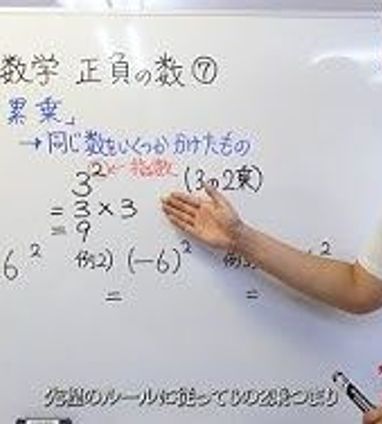 数学 正負の数⑦
累乗」
→同じ数をいくつかかけたもの
3² ← 指数 (3の2乗)
= 3×3
= 9
6² 例2) (-6)² 2
= =
先程のルールに従って